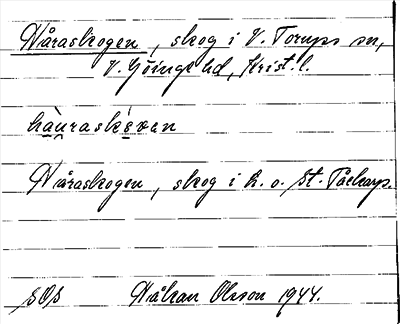 Håraskogen, skog i V. Torups sn,
V. Göinge hd, Krist. l.
hàu̯raskè̱ven
Håraskogen, skog i L. o. St.
SOS Håkan Olsson 1944.